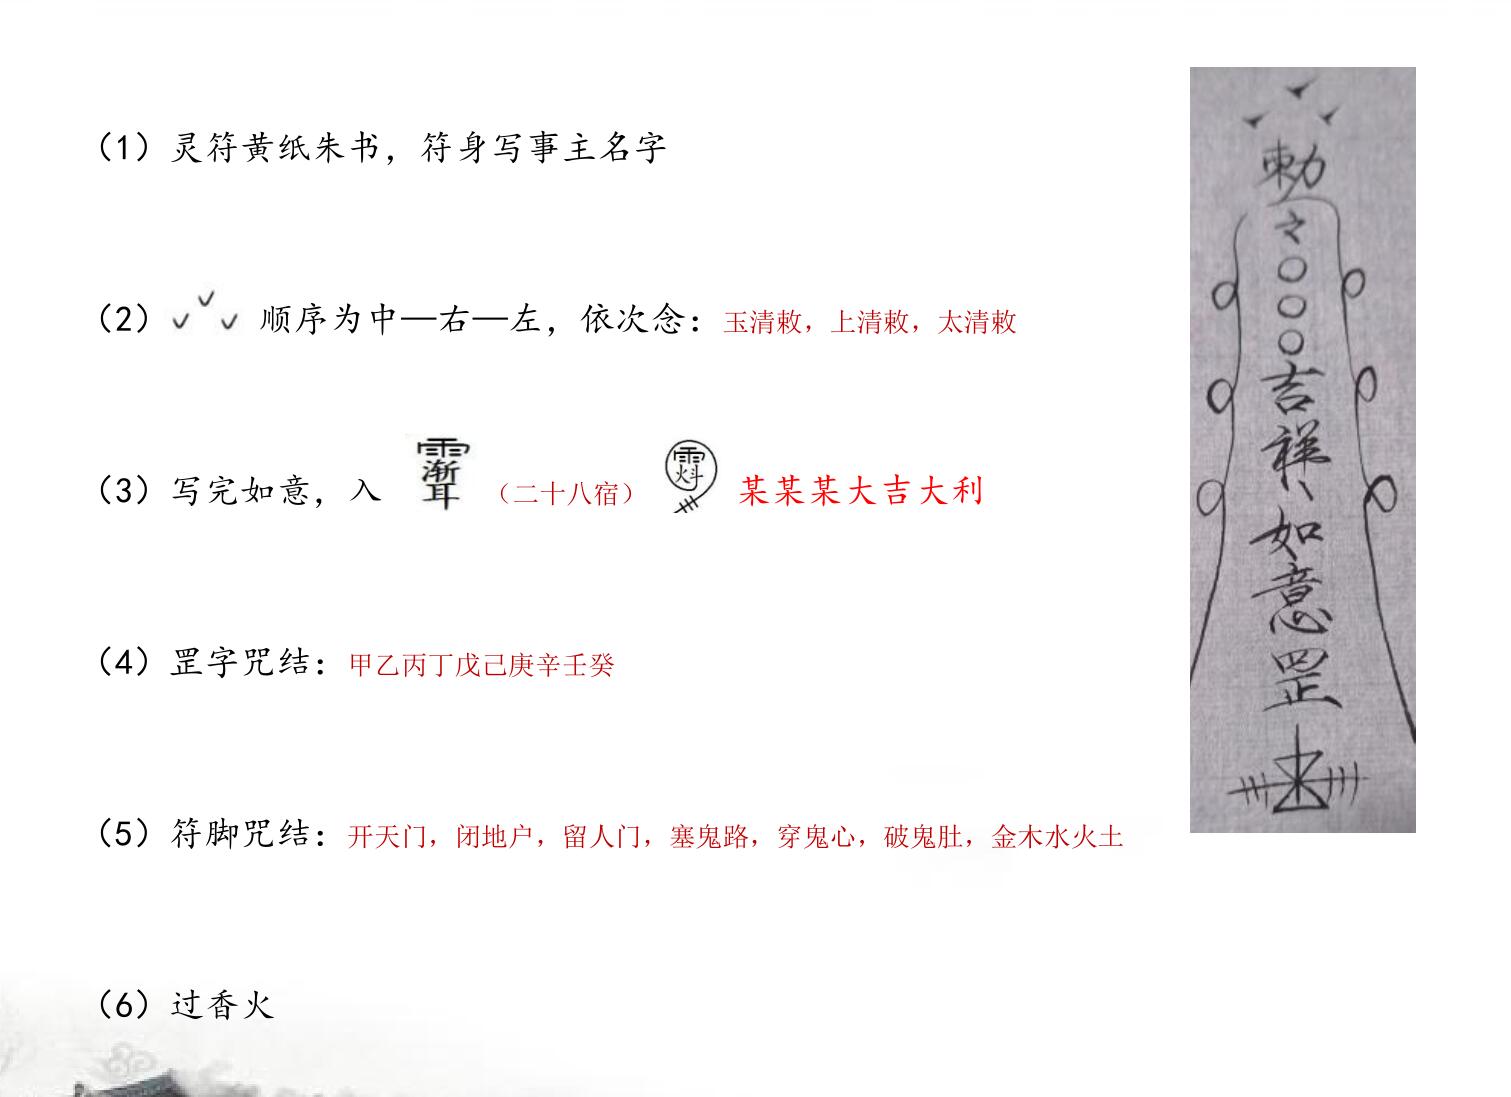 （1）灵符黄纸朱书，符身写事主名字
（2） 顺序为中—右—左，依次念：玉清敕，上清敕，太清敕
（3）写完如意，入 （二十八宿） 某某某大吉大利
（4）罡字咒结：甲乙丙丁戊己庚辛壬癸
（5）符脚咒结：开天门，闭地户，留人门，塞鬼路，穿鬼心，破鬼肚，金木水火土
（6）过香火
勅
〇
〇
〇
吉
祥
如
意
罡